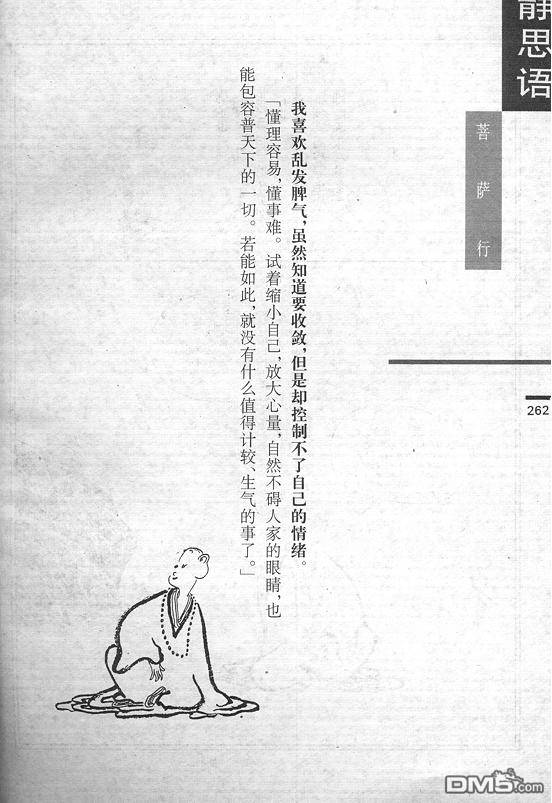 静思语
菩萨行
262
我喜欢乱发脾气，虽然知道要收敛，但是却控制不了自己的情绪。
「懂理容易，懂事难。试着缩小自己，放大心量，自然不碍人家的眼睛，也
能包容普天下的一切。若能如此，就没有什么值得计较、生气的事了。」
DM5.com